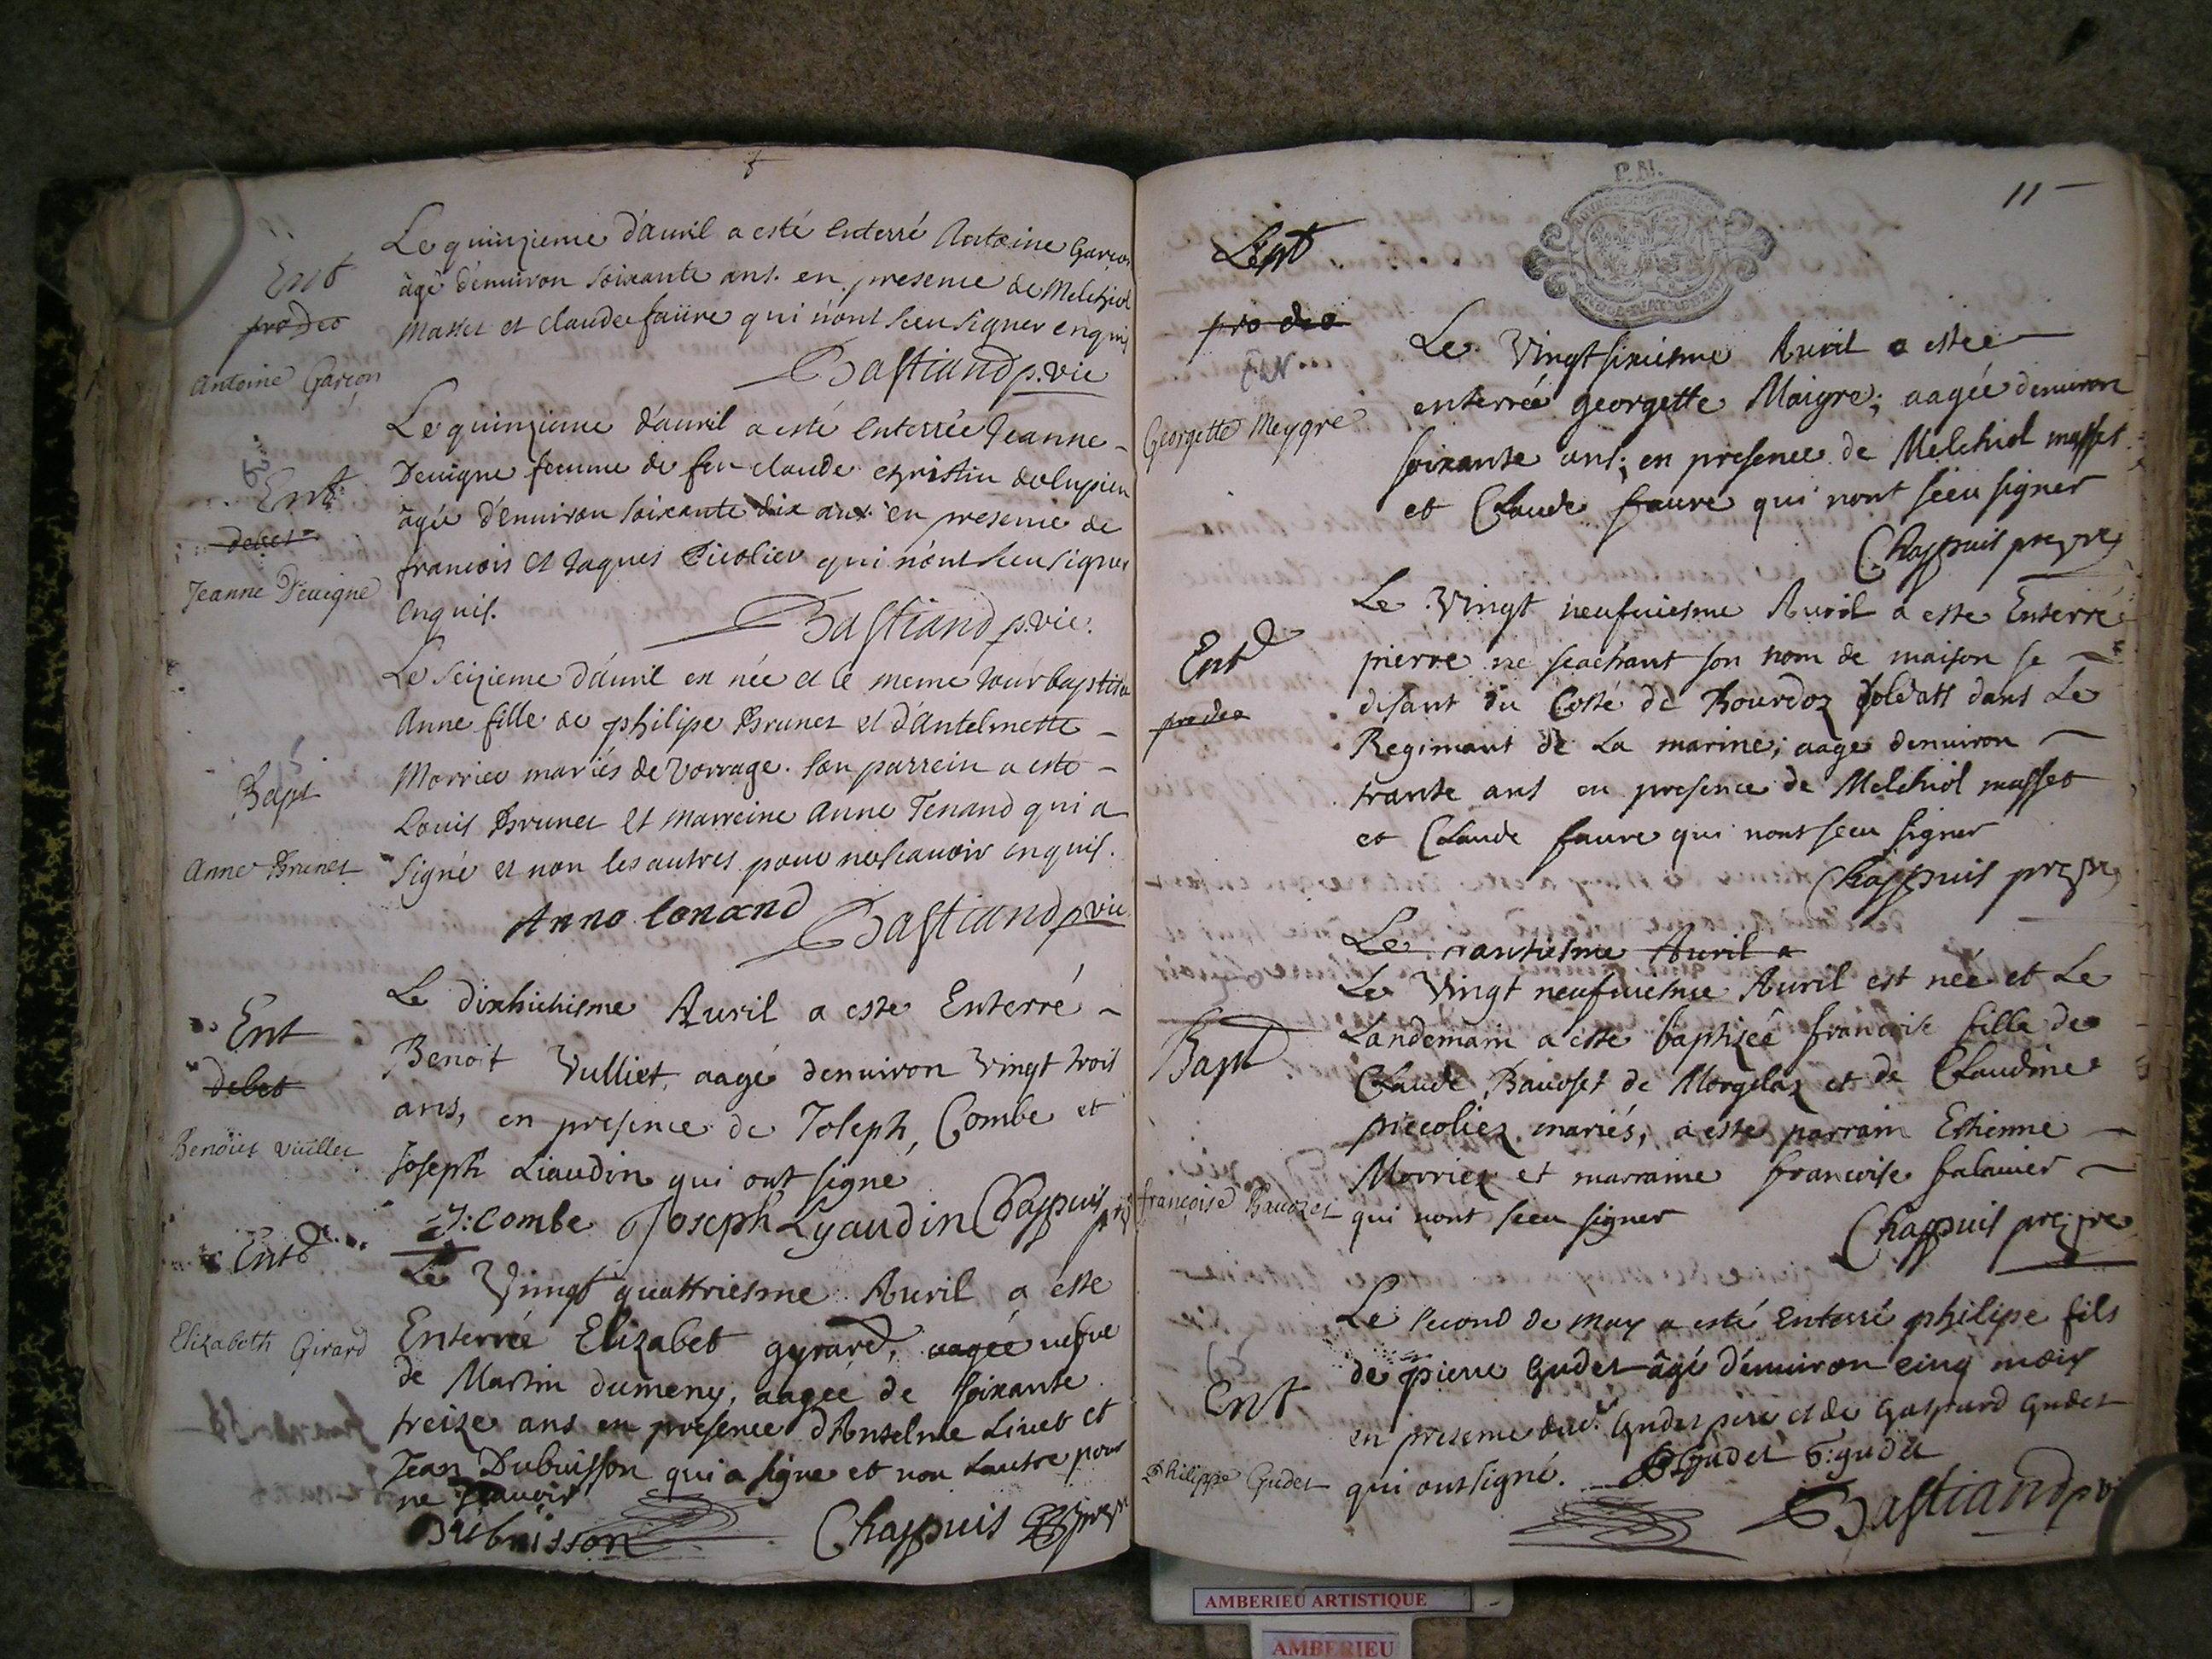 Le quinzieme d'auril a esté enterré Antoine Garcon
âgé d'enuiron soixante ans. en presence de Melchiol
Masset et claude faüre qui n'ont sceu signer enquis
Bastiand p. vic
Ent
pro deo
Antoine Garcon
Le quinzieme d'auril a esté enterrée Jeanne
Deuigne femme de feu claude christin
âgée d'enuiron soixante dix ans en presence de
francois et Jaques Picolier qui n'ont sceu signer
enquis.
Bastiand p. vic.
Ent
debet
Jeanne Deuigne
Le seizieme d'auril est née et le meme jour baptisée
Anne fille de philipe Brunet et d'Antelmette
Morrier mariés de Vorrage. son parrein a esté
Louis Brunet et marreine Anne Tenand qui a
signé et non les autres pour ne scauoir enquis.
Anne tenand Bastiand p. vic
Bapt
Anne Brunet
Le dixhuitiesme Auril a este Enterré
Benoit Vulliet, aagé denuiron vingt trois
ans, en presence de Joseph Combe et
Joseph Liaudin qui ont signé
J: Combe Joseph Lyaudin Chappuis
Ent
debet
Benoit Vuillet
Le Vingt quattriesme Auril a este
Enterrée Elizabet gyrard, aagée uefue
de Martin dumeny, aagée de soixante
treize ans en presence d'Anselme Liuet et
Jean Dubuisson qui a signe et non lautre pour
ne scauoir
Dubuisson Chappuis
Ent
Elizabeth Girard
11
Ent
pro deo
Georgette Meygre
Le Vingt sixiesme Auril a estee
enterrée georgette Maigre; aagée denuiron
soixante ans; en presence de Melchiol masset
et Claude faure qui nont sceu signer
Chappuis
Le Vingt neufuiesme Auril a este Enterré
pierre ne scachant son nom de maison se
disant du Costé de Bourdoz soldatt dans Le
Regimant de La marine; aage denuiron
trante ans en presence de Melchiol masset
et Claude faure qui nont sceu signer
Chappuis
Ent
pro deo
Le trantiesme Auril a
Le Vingt neufuiesme Auril est née et Le
Landemain a este baptizée francoise fille de
Claude Bauoset de Morgelaz et de Claudine
piccoliez mariés; a este parrain Estienne
Morriez et marraine francoise falauier
qui nont sceu signer
Chappuis
Bapt
françoise Bauozet
Le second de may a esté enterré philipe fils
de pierre Gudet âgé d'enuiron cinq mois
en presence dud. Gudet pere et de Gaspard Gudet
qui ont signé. P Gudet G: gudet
Bastiand p vi
Ent
Philippe Gudet
AMBERIEU ARTISTIQUE
AMBERIEU